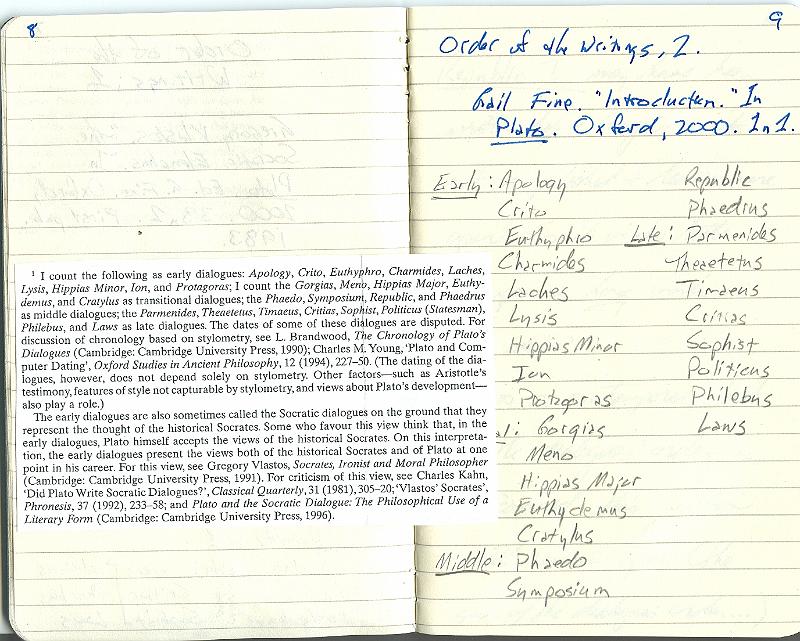 8
¹ I count the following as early dialogues: Apology, Crito, Euthyphro, Charmides, Laches,
Lysis, Hippias Minor, Ion, and Protagoras; I count the Gorgias, Meno, Hippias Major, Euthy-
demus, and Cratylus as transitional dialogues; the Phaedo, Symposium, Republic, and Phaedrus
as middle dialogues; the Parmenides, Theaetetus, Timaeus, Critias, Sophist, Politicus (Statesman),
Philebus, and Laws as late dialogues. The dates of some of these dialogues are disputed. For
discussion of chronology based on stylometry, see L. Brandwood, The Chronology of Plato's
Dialogues (Cambridge: Cambridge University Press, 1990); Charles M. Young, 'Plato and Com-
puter Dating', Oxford Studies in Ancient Philosophy, 12 (1994), 227–50. (The dating of the dia-
logues, however, does not depend solely on stylometry. Other factors—such as Aristotle's
testimony, features of style not capturable by stylometry, and views about Plato's development—
also play a role.)
The early dialogues are also sometimes called the Socratic dialogues on the ground that they
represent the thought of the historical Socrates. Some who favour this view think that, in the
early dialogues, Plato himself accepts the views of the historical Socrates. On this interpreta-
tion, the early dialogues present the views both of the historical Socrates and of Plato at one
point in his career. For this view, see Gregory Vlastos, Socrates, Ironist and Moral Philosopher
(Cambridge: Cambridge University Press, 1991). For criticism of this view, see Charles Kahn,
'Did Plato Write Socratic Dialogues?', Classical Quarterly, 31 (1981), 305–20; 'Vlastos' Socrates',
Phronesis, 37 (1992), 233–58; and Plato and the Socratic Dialogue: The Philosophical Use of a
Literary Form (Cambridge: Cambridge University Press, 1996).
9
Order of the Writings, 2.
Gail Fine. "Introduction." In
Plato. Oxford, 2000. 1n1.
Early: Apology
Crito
Euthyphro
Charmides
Laches
Lysis
Hippias Minor
Ion
Protagoras
al: Gorgias
Meno
Hippias Major
Euthydemus
Cratylus
Middle: Phaedo
Symposium
Republic
Phaedrus
Late: Parmenides
Theaetetus
Timaeus
Critias
Sophist
Politicus
Philebus
Laws